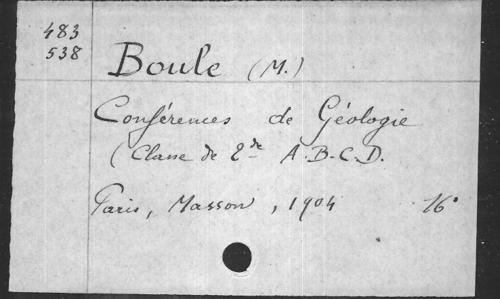 483
538
Boule (M.)
Conférences de Géologie
(Classe de 2de A.B.C.D.
Paris, Masson, 1904 16°